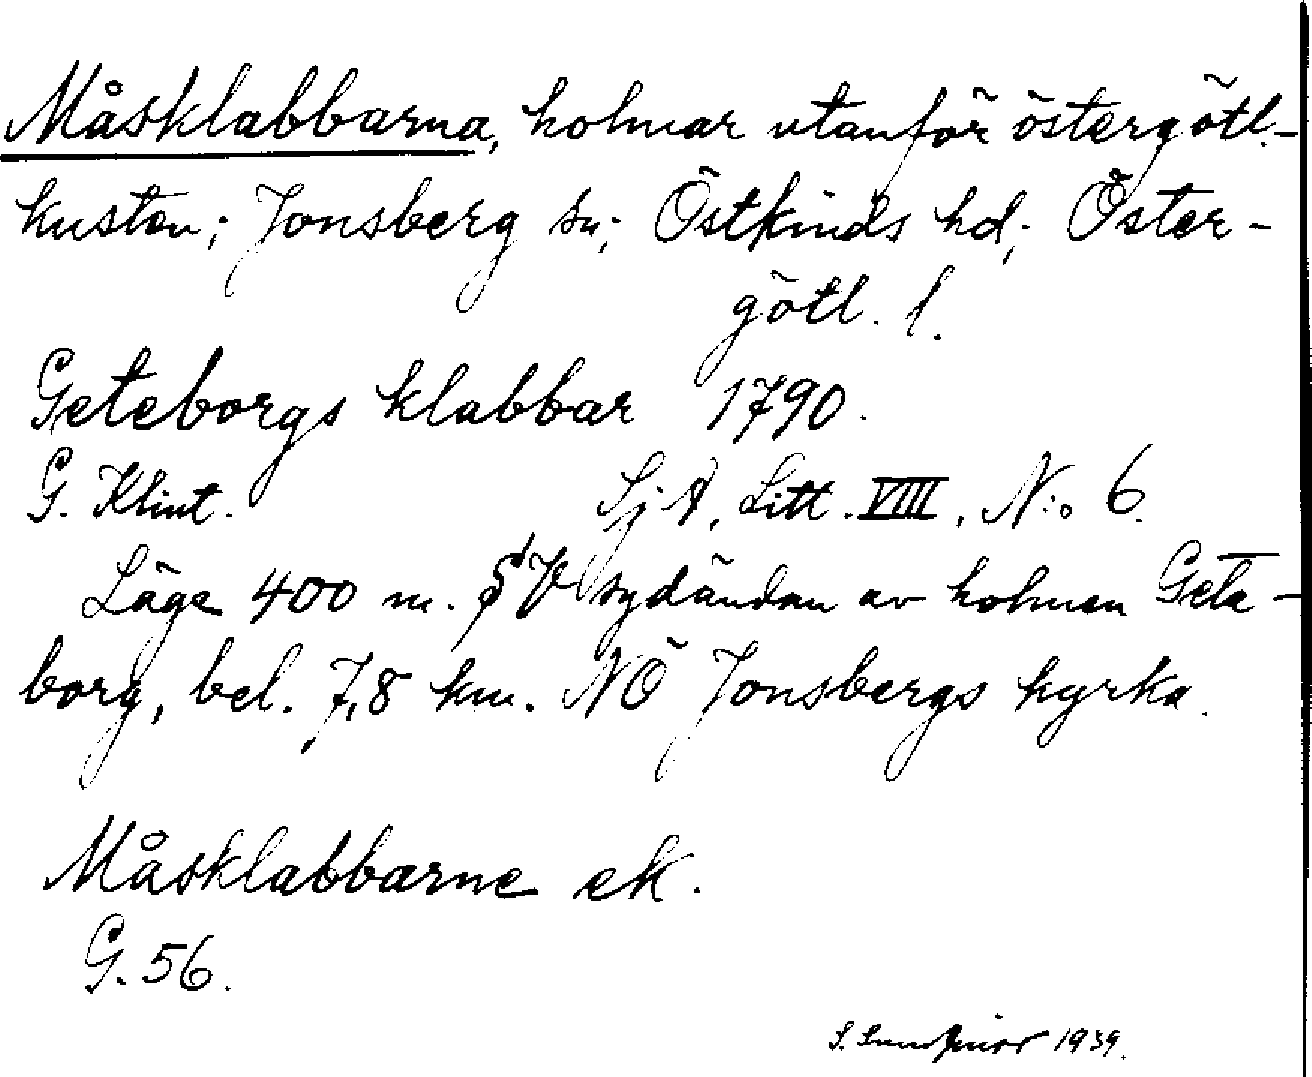 Måsklabbarna, holmar utanför östergötl.-
kusten; Jonsberg sn; Östkinds hd; Öster-
götl. l.
Geteborgs klabbar 1790.
G. Klint. SjA, Litt. VIII, N:o 6.
Läge 400 m. V sydändan av holmen Gete-
borg, bel. 7,8 km. NÖ Jonsbergs kyrka.
Måsklabbarne ek.
G. 56.
S. 1939.